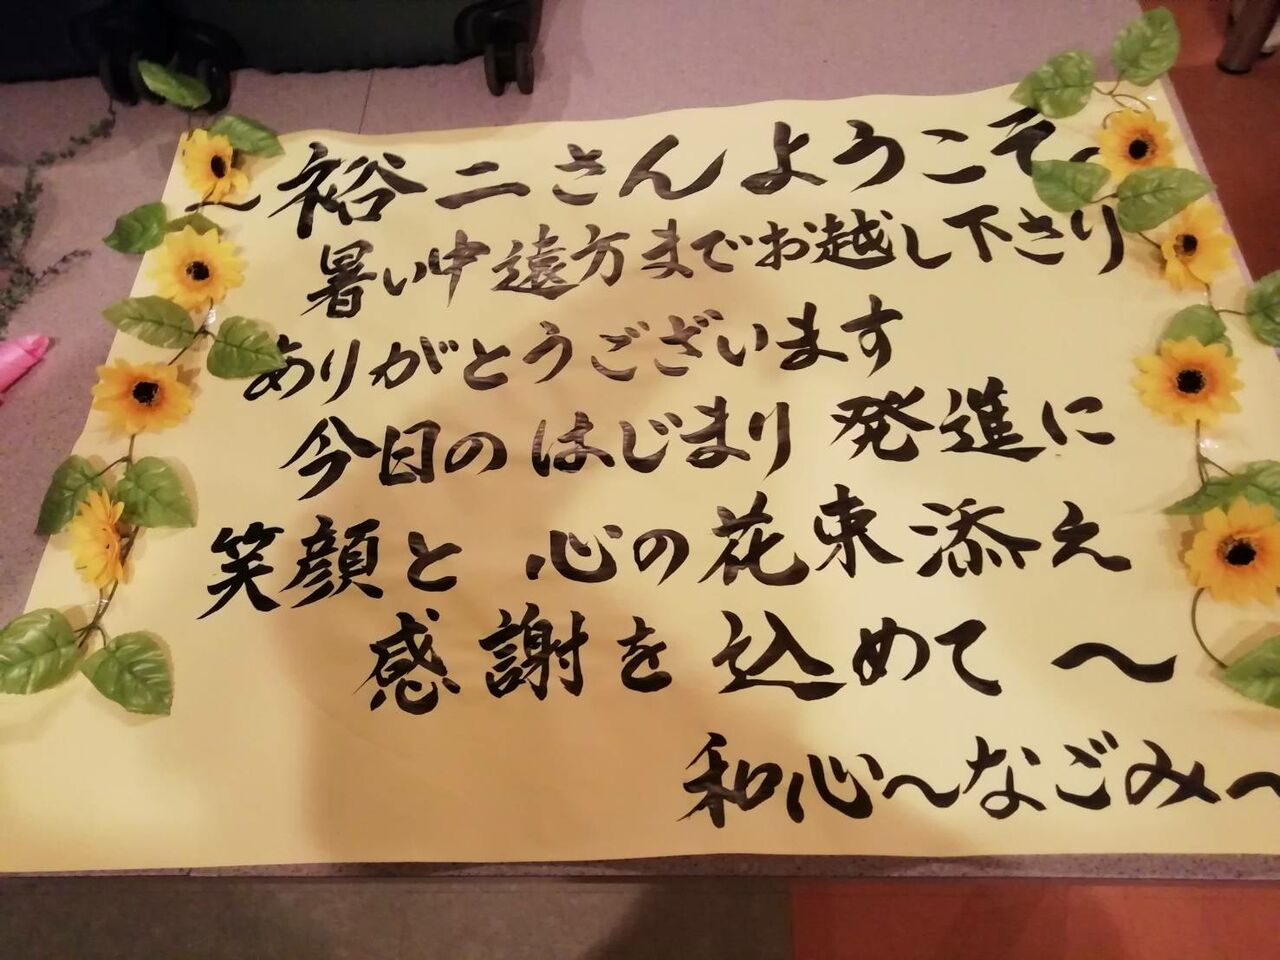 ～裕二さんようこそ～
暑い中遠方までお越し下さり
ありがとうございます
今日のはじまり発進に
笑顔と 心の花束添え
感謝を込めて～
和心～なごみ～